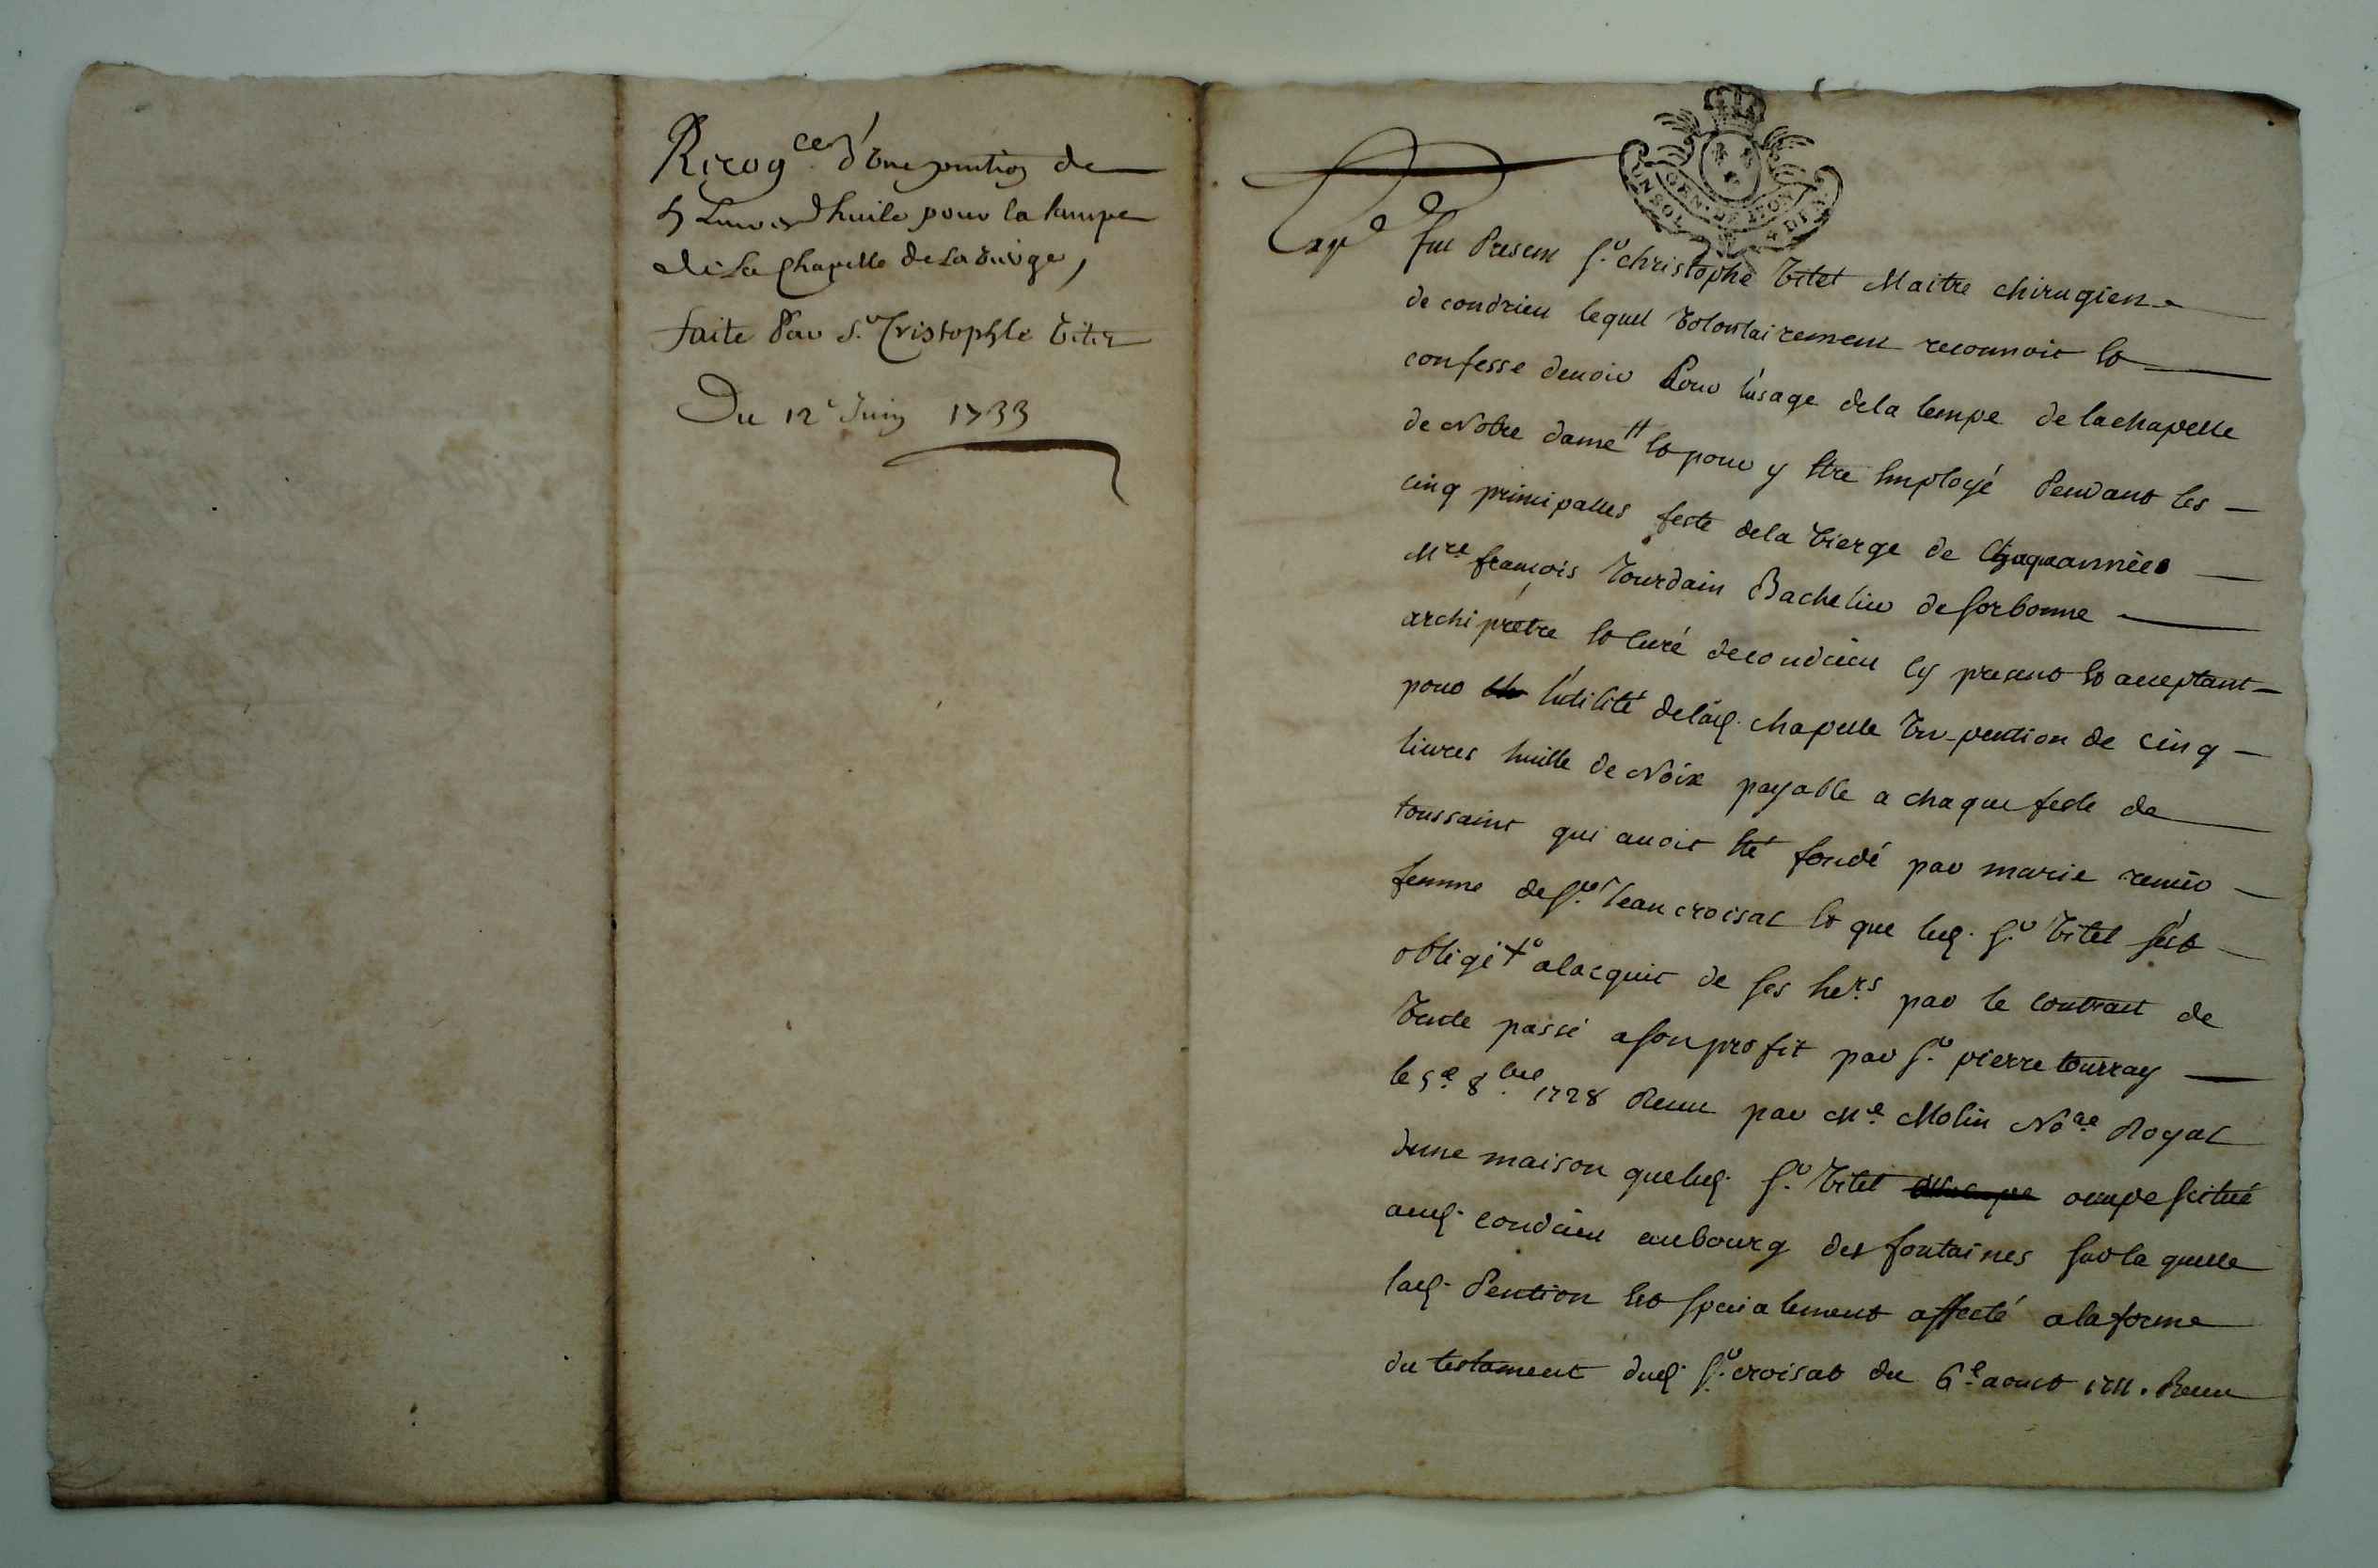 Recog.ce d'une pention de
5 Livres d'huile pour la lampe
de La Chapelle de La vierge,
faite Par S.r Cristophle vitet
Du 12e Juin 1733
GEN. DE LYON
fut Present S.r christophe vitet Maitre chirugien
de condrieu lequel volontairement reconnoit et
confesse devoir Pour l'usage dela lempe de lachapelle
de Notre dame # et pour y etre employé Pendant les
cinq principalles feste dela vierge de chaqueannée
Mre françois Jourdain Bachelier de sorbonne
archi prêtre et curé decondrieu cy present et acceptant
pour l'utilité delad. chapelle un pention de cinq
livres huille de Noix payable a chaque feste de
toussaint qui avoit eté fondé par marie
femme deS.r Jean croisat et que led. S.r vitet s'est
obligé alacquit de ses hers par le contract de
vente passé ason profit par S.r pierre tourray
le 5e 8.bre 1728 Receu par Me Molin No.re Royal
dune maison queled. S.r vitet occupe scitué
aud. condrieu aubourg des fontaines sur la quelle
lad. Pention est specialement affecté alaforme
du testament dud. S.r croisat du 6e aoust 1711. Receu